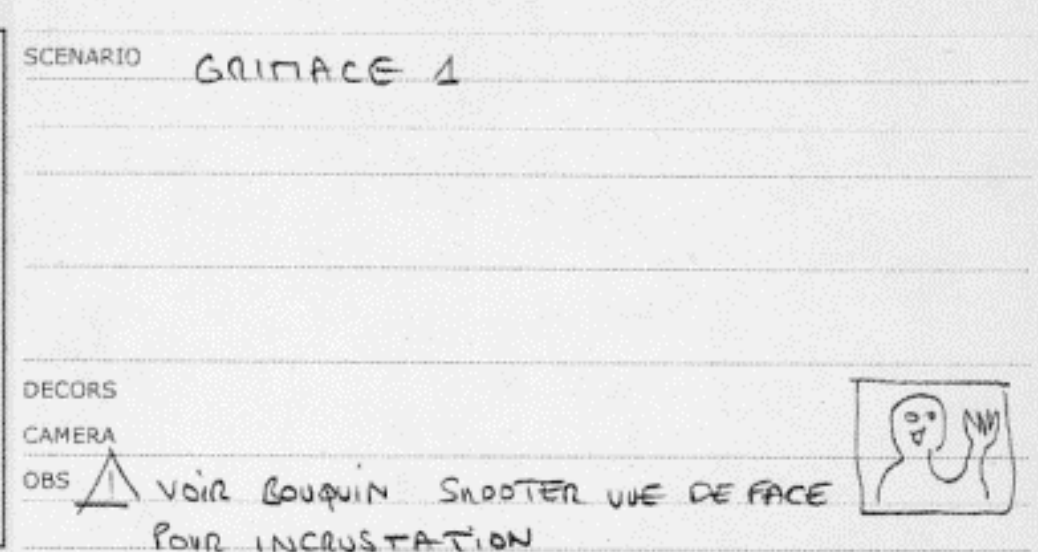 SCENARIO GRIMACE 1
DECORS
CAMERA
OBS VOIR BOUQUIN SHOOTER VUE DE FACE
POUR INCRUSTATION